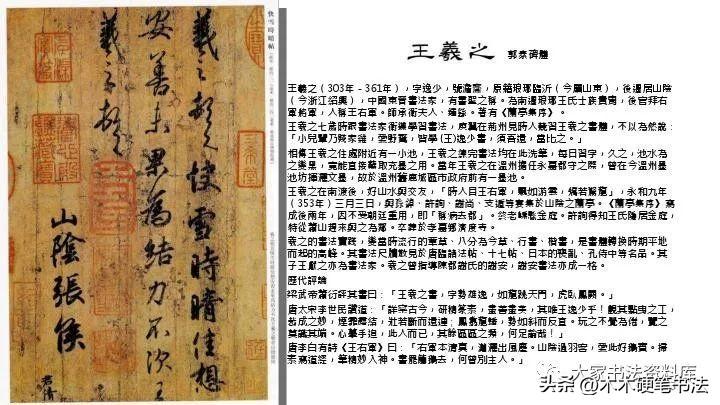 快雪時晴帖
羲之頓首快雪時晴佳想
安善未果為結力不次王
羲之頓首
山陰張侯
君倩
王羲之 郭泰碑體
王羲之（303年－361年），字逸少，號澹齋，原籍琅琊臨沂（今屬山東），後遷居山陰
（今浙江紹興），中國東晉書法家，有書聖之稱。為南遷琅琊王氏士族貴胄，後官拜右
軍將軍，人稱王右軍。師承衛夫人、鍾繇。著有《蘭亭集序》。
王羲之七歲時跟書法家衛鑠學習書法，庾翼在荊州見時人競習王羲之書體，不以為然說：
「小兒輩乃賤家雞，愛野鶩，皆學(王)逸少書，須吾還，當比之。」
相傳王羲之住處附近有一小池，王羲之練完書法均在此洗筆，每日習字，久之，池水為
之變黑，竟能直接蘸取充墨之用。當年王羲之在溫州擔任永嘉郡守之際，曾在今溫州墨
池坊揮灑文墨，故於溫州舊鹿城區市政府前有一墨池。
王羲之在南渡後，好山水與交友，「時人目王右軍，飄如游雲，矯若驚龍」，永和九年
（353年）三月三日，與孫綽、許詢、謝尚、支遁等宴集於山陰之蘭亭。《蘭亭集序》寫
成後兩年，因不受朝廷重用，即「稱病去郡」。終老嵊縣金庭。許詢得知王氏隱居金庭，
特從蕭山趕來與之為鄰。卒葬於孝嘉鄉濟度寺。
羲之的書法實踐，變當時流行的章草、八分為今草、行書、楷書，是書體轉換時期平地
而起的高峰。其書法尺牘散見於唐臨諸法帖、十七帖、日本的喪亂、孔侍中等名品。其
子王獻之亦為書法家。羲之曾指導陳郡謝氏的謝安，謝安書法亦成一格。
歷代評論
梁武帝蕭衍評其書曰：「王羲之書，字勢雄逸，如龍跳天門，虎臥鳳闕。」
唐太宗李世民讚道：「詳察古今，研精篆素，盡善盡美，其唯王逸少乎！觀其點曳之工，
裁成之妙，煙霏露結，狀若斷而還連；鳳翥龍蟠，勢如斜而反直。玩之不覺為倦，覽之
莫識其端。心摹手追，此人而已，其餘區區之類，何足論哉！」
唐李白有詩《王右軍》曰：「右軍本清真，瀟灑出風塵。山陰過羽客，愛此好鵝賓。掃
素寫道經，筆精妙入神。書罷籠鵝去，何曾別主人。」
大家书法资料库
头条 @木木硬笔书法